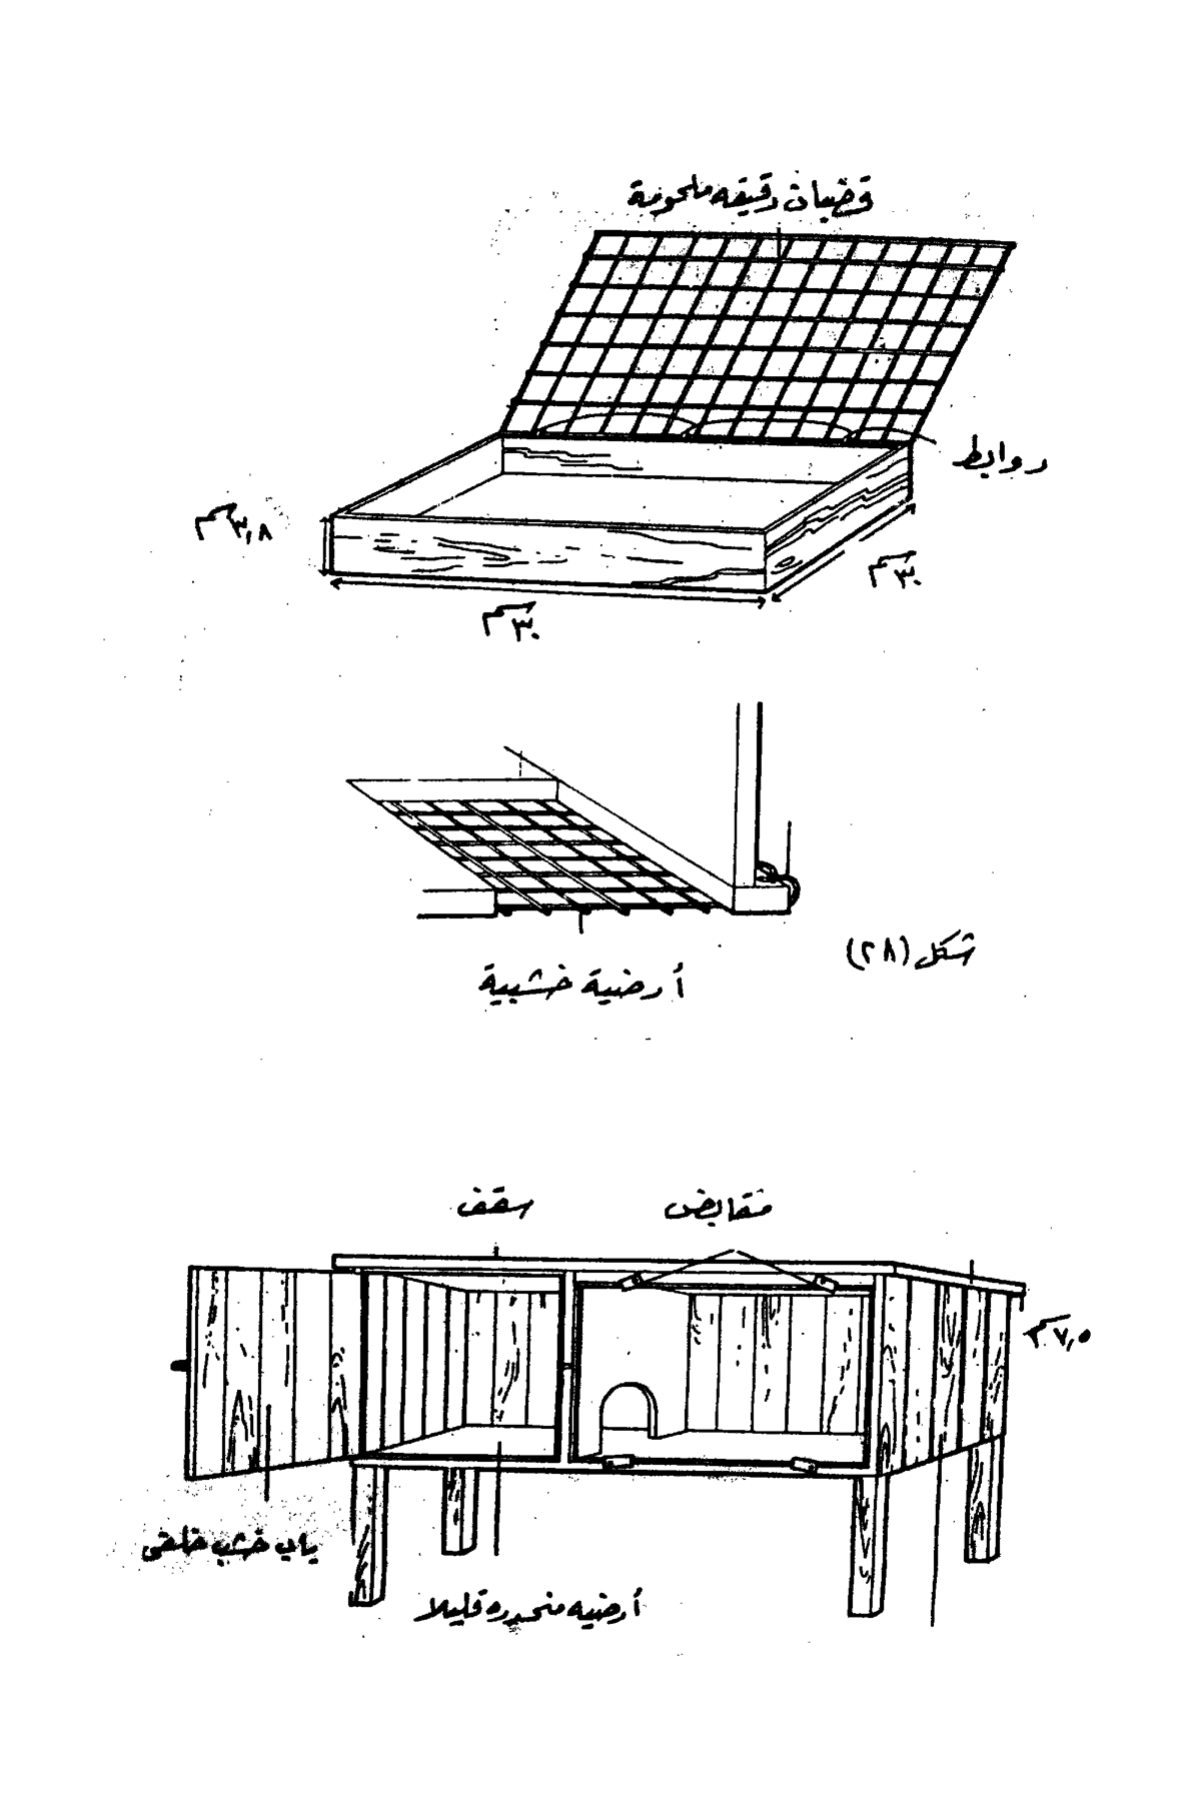 قضبان رقيقه ملحومة
روابط
٣,٨ سم
٣٠ سم
٣٠ سم
شكل (٢٨)
أرضية خشبية
مقابض
سقف
٧,٥ سم
باب خشب خلفى
أرضيه منحدره قليلا